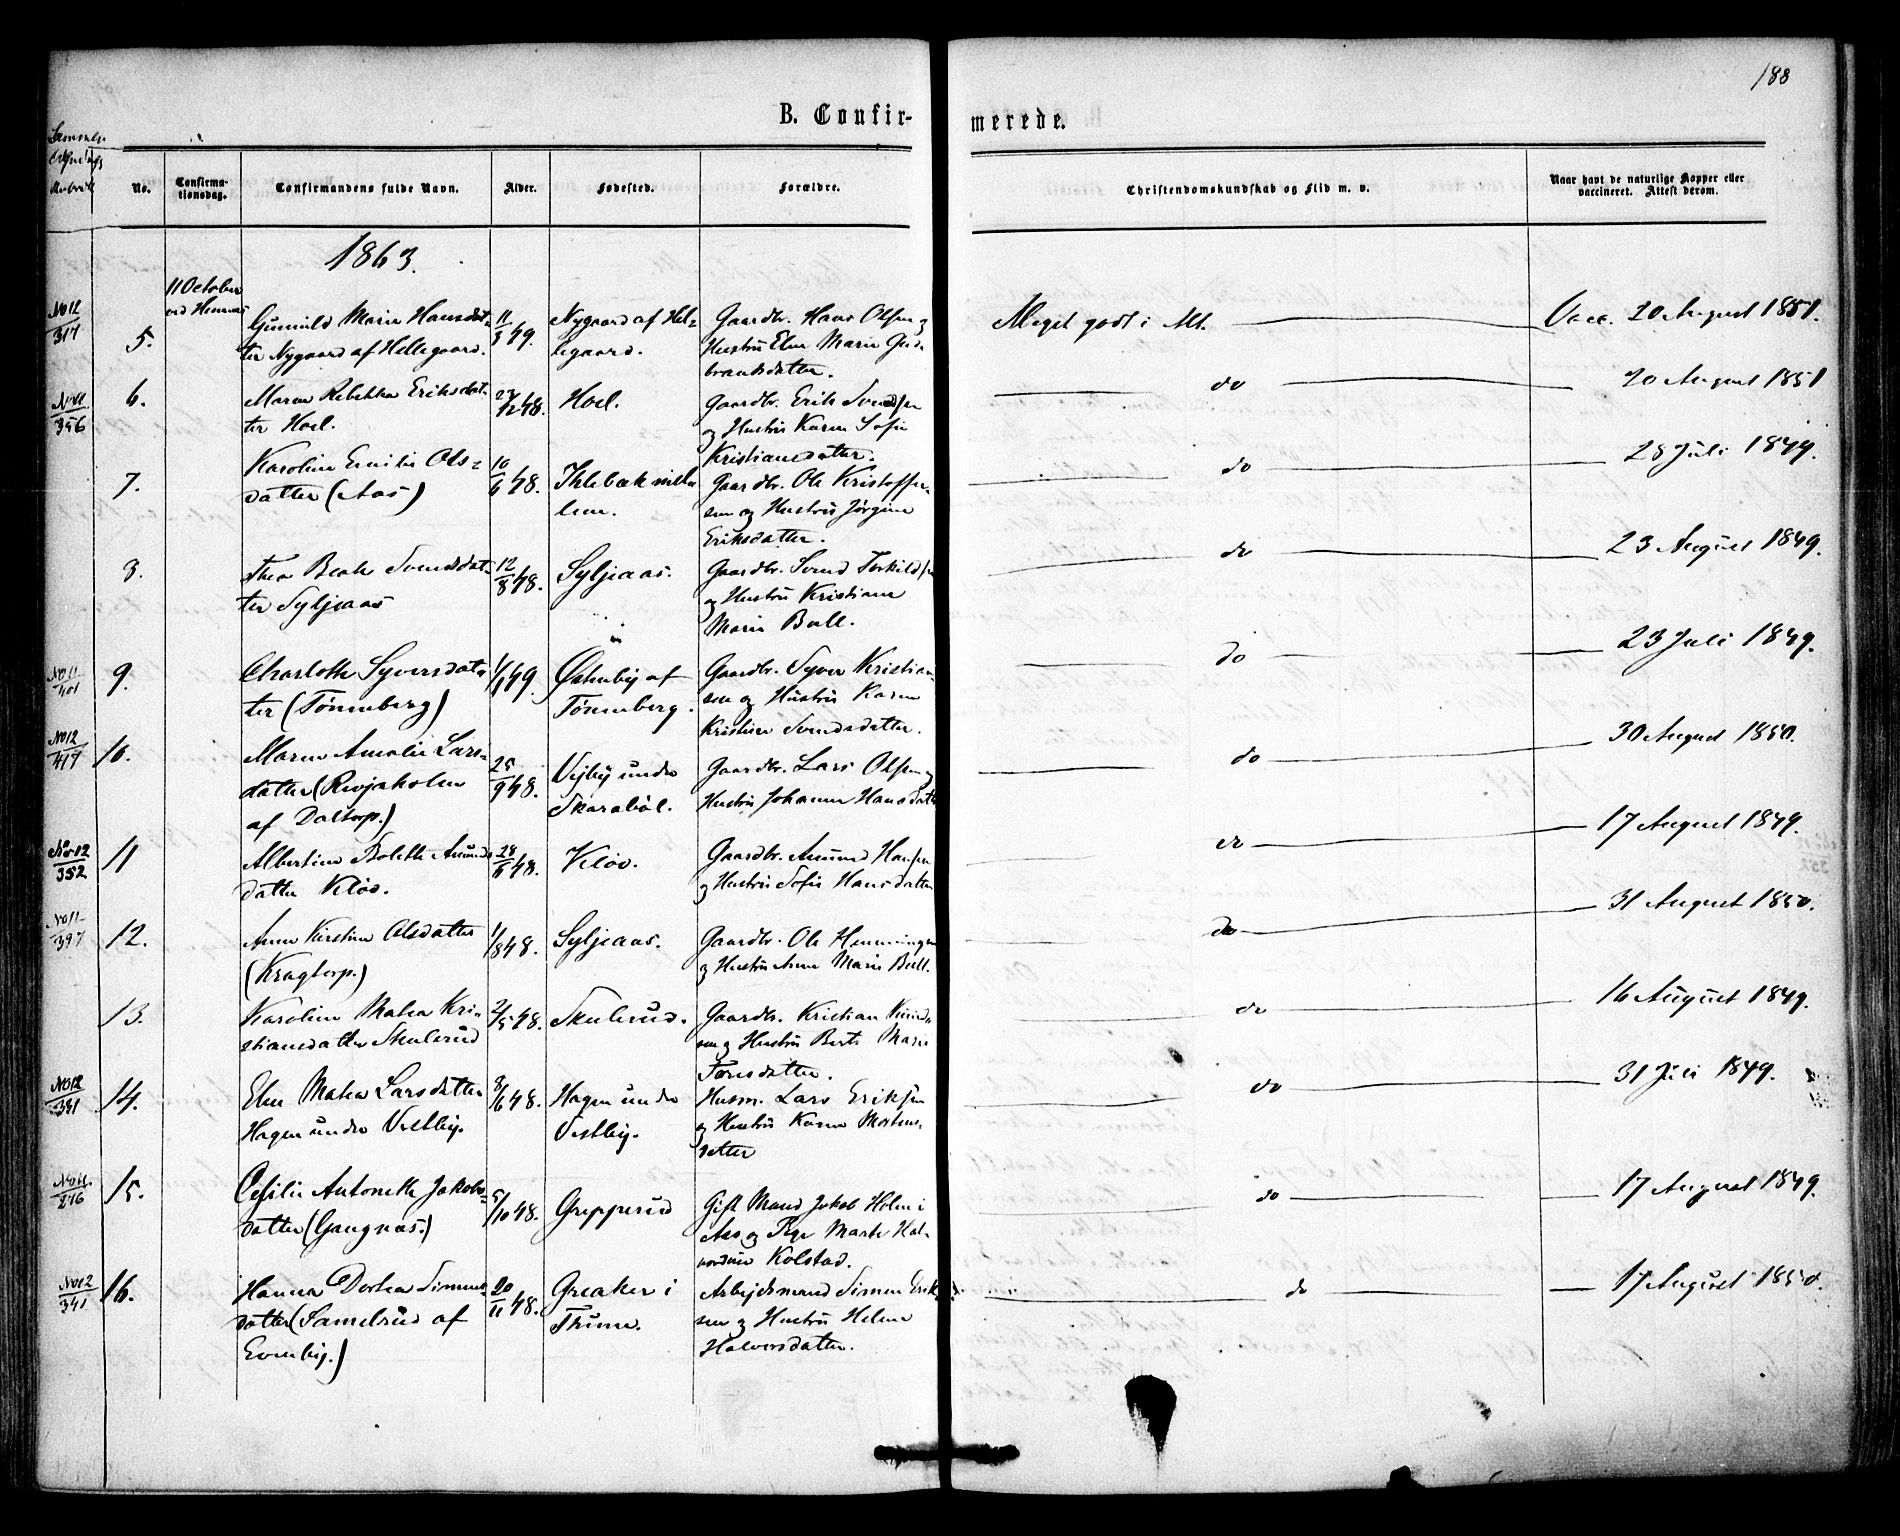 188
B. Confir-
merede.
No.
Confirma-
tionsdag.
Confirmandens fulde Navn.
Alder.
Fødested.
Forældre.
Christendomskundskab og Flid m. v.
Naar havt de naturlige Kopper eller
vaccineret. Attest derom.
1863.
11 October
No 12
317
5.
Gunnild Marie Hansdat-
ter Nygaard af Hellegaard.
11/3 49.
Nygaard af Hel-
legaard.
Gaardbr. Hans Olsen og
Hustru Elen Marie Gud-
brandsdatter.
Meget godt i Alt.
Vacc. 20 August 1851.
No 11
356
6.
Maren Rebekka Eriksdat-
ter Hoel.
Hoel.
Gaardbr. Erik Svendsen
og Hustru Karen Sofie
Kristiansdatter.
do
20 August 1851
7.
Karoline Emilie Ols-
datter (Aas)
10/6 48.
Gaardbr. Ole Kristoffer-
sen og Hustru Jørgine
Eriksdatter.
do
28 Juli 1849.
8.
Thea Beate Svendsdat-
ter Syljeaas
12/8 48.
Syljeaas.
Gaardbr. Svend Torkildsen
og Hustru Kristiane
Marie Bull.
do
23 August 1849.
No 11
401
9.
Charlotte Syversdat-
ter (Tønneberg)
1/1 49.
Østenby af
Tønneberg.
Gaardbr. Syver Kristian-
sen og Hustru Karen
Kristine Svendsdatter.
do
23 Juli 1849.
No 12
417
10.
Maren Amalie Lars-
datter (Revjeholen
af Daltorp.)
25/9 48.
Vejby under
Skarabøl.
Gaardbr. Lars Olsen og
Hustru Johanne Hansdatter
do
30 August 1850.
No 12
352
11
Albertine Bolette Amunds-
datter Kløv.
28/6 48.
Kløv.
Gaardbr. Amund Hansen
og Hustru Sofie Hansdatter
do
17 August 1849.
No 11
397
12.
Anne Kirstine Olsdatter
(Kragtorp.)
11/8 48.
Syljeaas.
Gaardbr. Ole Hemmingsen
og Hustru Anne Marie Bull.
do
31 August 1850.
13.
Karoline Matea Kri-
stiansdatter Skulerud
2/5 48.
Skulerud.
Gaardbr. Kristian
sen og Hustru Berte Marie
Toresdatter.
do
16 August 1849.
No 12
331
14.
Elen Matea Larsdatter
Hagen under Vestby.
8/6 48.
Hagen under
Vestby.
Husm. Lars Eriksen
og Hustru Karen Mortens-
datter
do
31 Juli 1849.
No 11.
276
15.
Cesilie Antonette Jakobs-
datter (Gangnæs.)
5/10 48.
Gripperud
Gift Mand Jakob Holm i
Aas og Pige Marte Hal-
vorsdatter Kolstad.
do
17 August 1849.
No 12
341
16.
Hanna Dortea Simens-
datter (Samelrud af
Evenby.)
20/11 48.
Greaker i
Thune.
Arbejdsmand Simen Erik-
sen og Hustru Helene
Halvorsdatter.
do
17 August 1850.